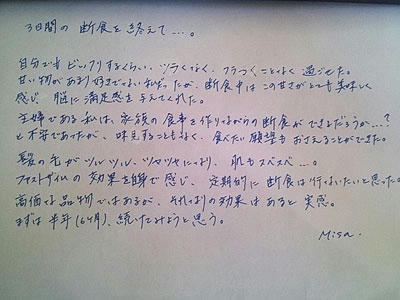 3日間の 断食を 終えて…。
自分でもビックリするくらい、ツラくなく、フラつくことなく 過ごせた。
甘い物があまり好きでない私だったが、断食中は この甘さがとても美味しく
感じ、脳に満足感を与えてくれた。
主婦である私は、家族の食事を作りながらの断食ができるだろうか…?
と不安であったが、味見することもなく、食べたい願望もおさえることができた。
髪の毛がツルツル、ツヤツヤになり、肌もスベスベ…。
ファストザイムの効果を身で感じ、定期的に断食は行ないたいと思った。
高価な品物ではあるが、それなりの効果はあると実感。
まずは半年(6ヶ月)、続けてみようと思う。
Misa.